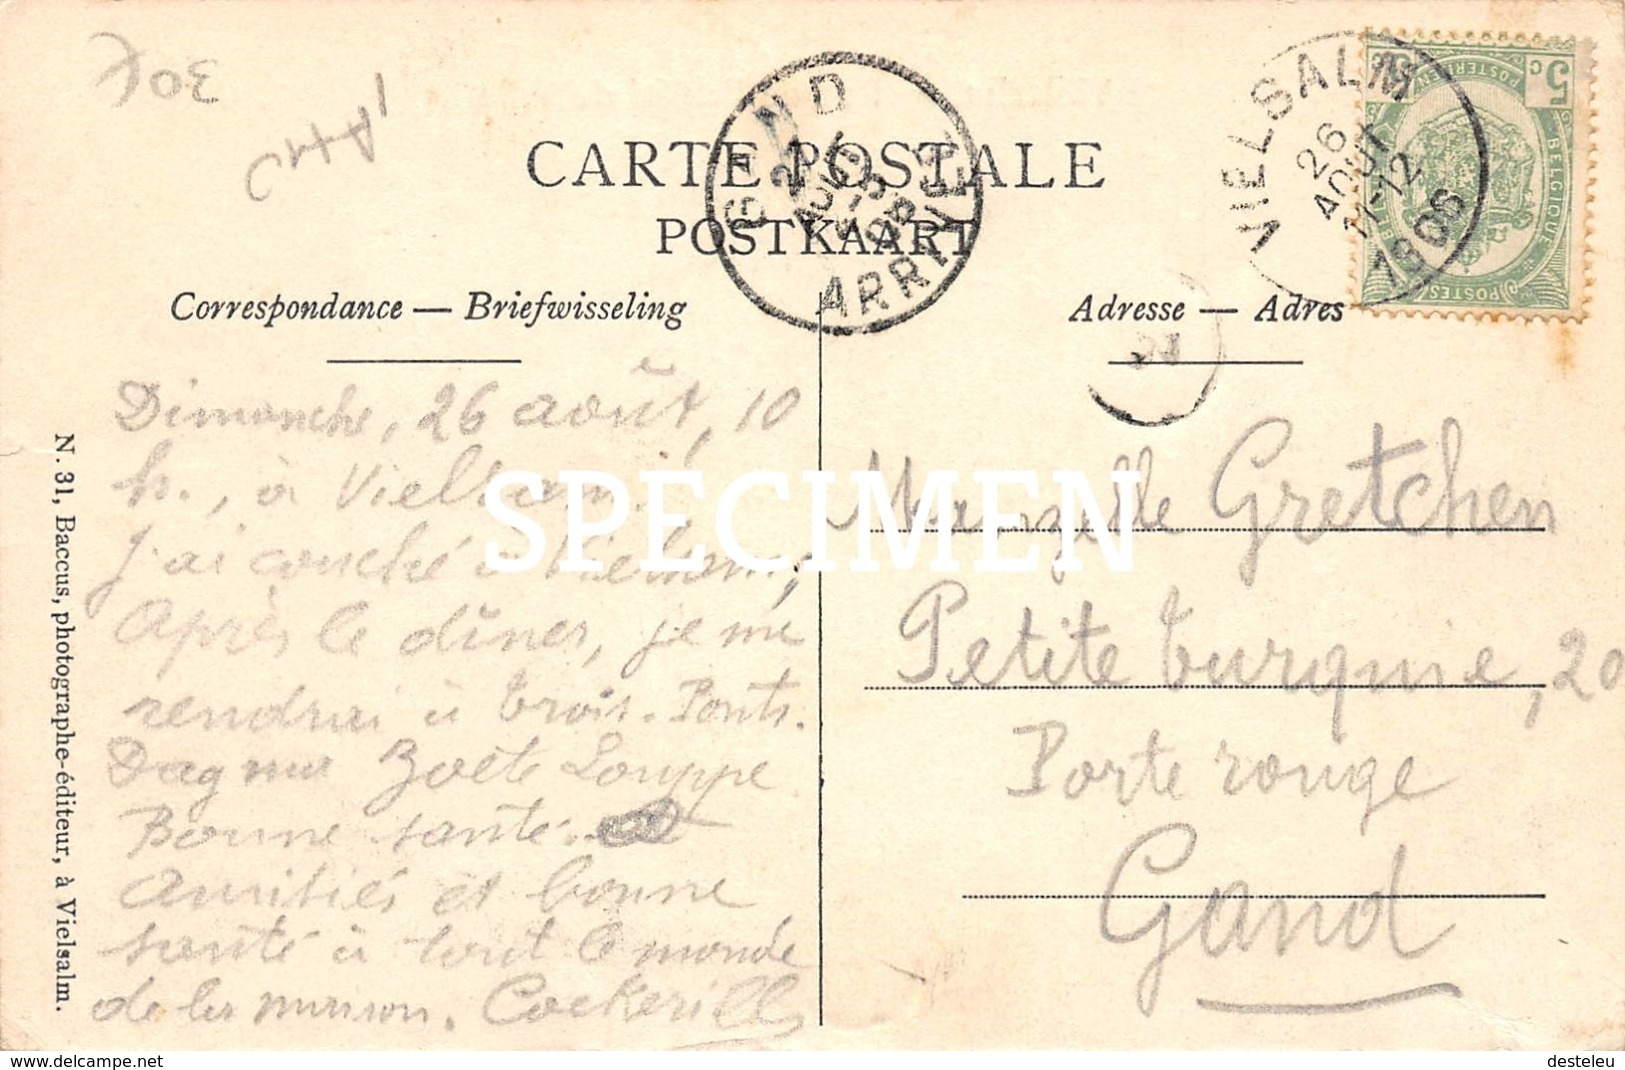 CARTE POSTALE
POSTKAART
Correspondance — Briefwisseling
Adresse — Adres
GAND
ARRIVÉE
VIELSALM
26
AOUT
11-12
1906
5 c
BELGIQUE
POSTES
POSTERIJEN
Dimanche, 26 août, 10
h., à Vielsalm.
J'ai couché à Vielsalm;
Après le dîner, je me
rendrai à trois-Ponts.
Bonne santé.
Amitiés et bonne
santé à tout le monde
de la maison. Cockerill
Mamzelle Gretchen
Petite turquie, 20
Porte rouge
Gand
N. 31, Baccus, photographe-éditeur, à Vielsalm.
SPECIMEN
https://www.delcampe.net
desteleu